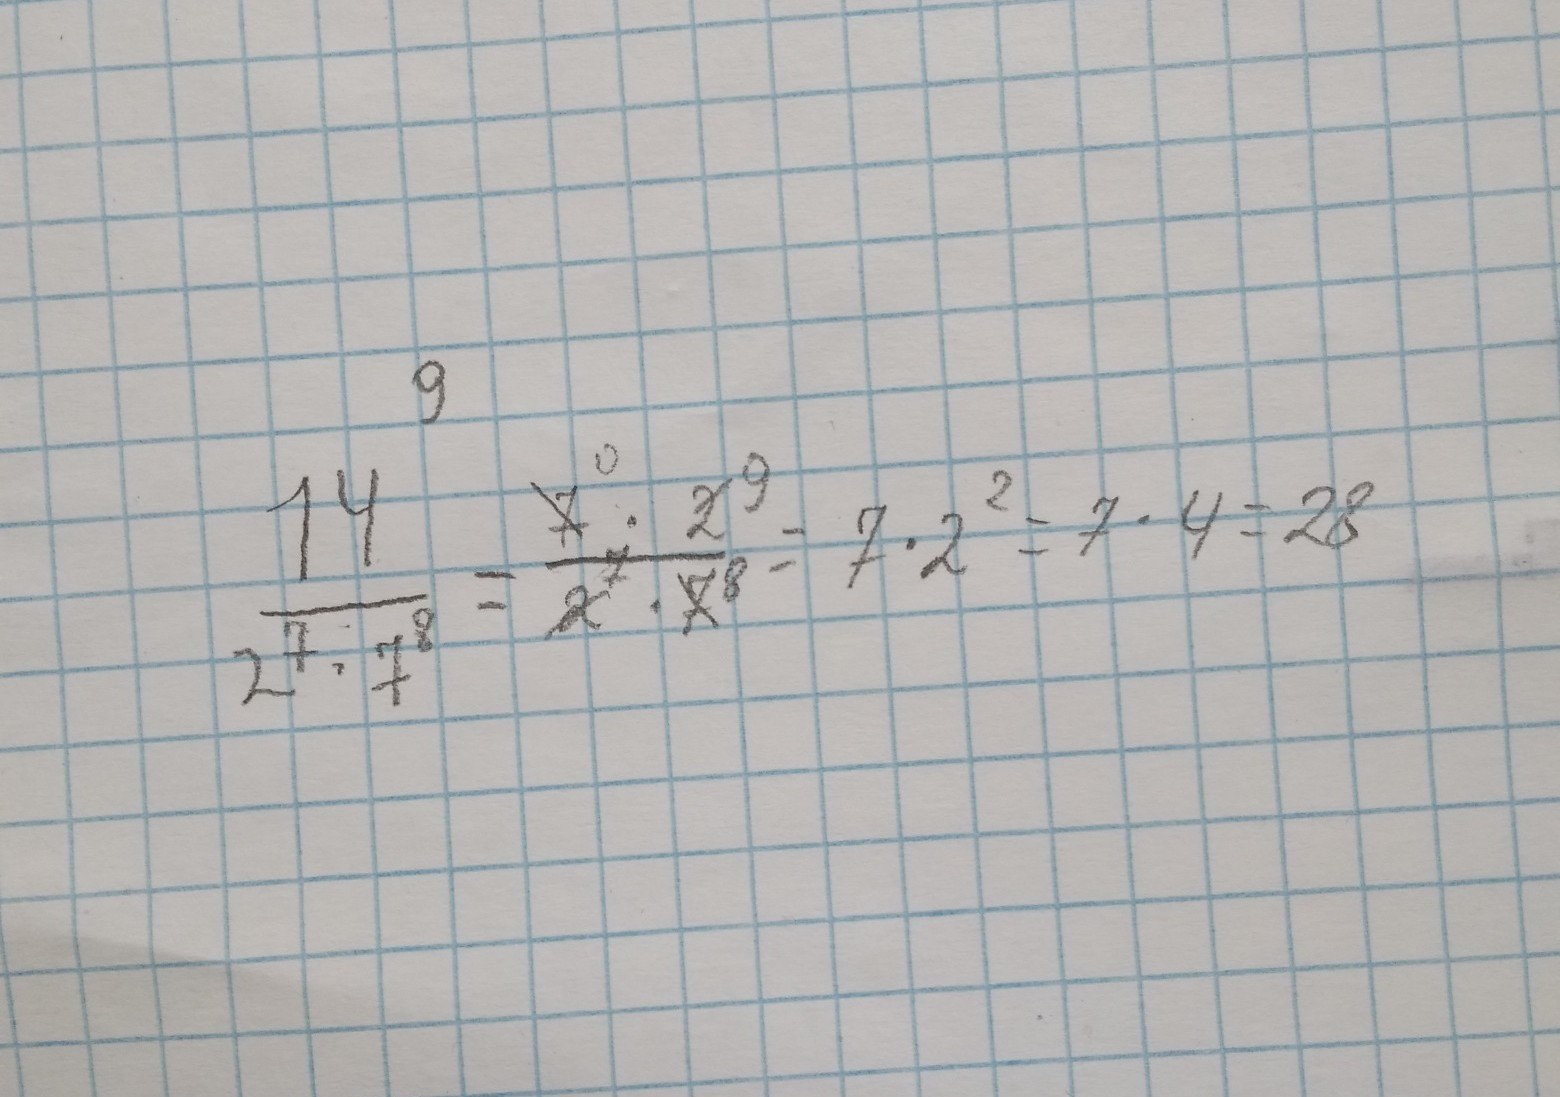 14⁹/(2⁷·7⁸) = (7⁰·2⁹)/(2⁷·7⁸) = 7·2² = 7·4 = 28